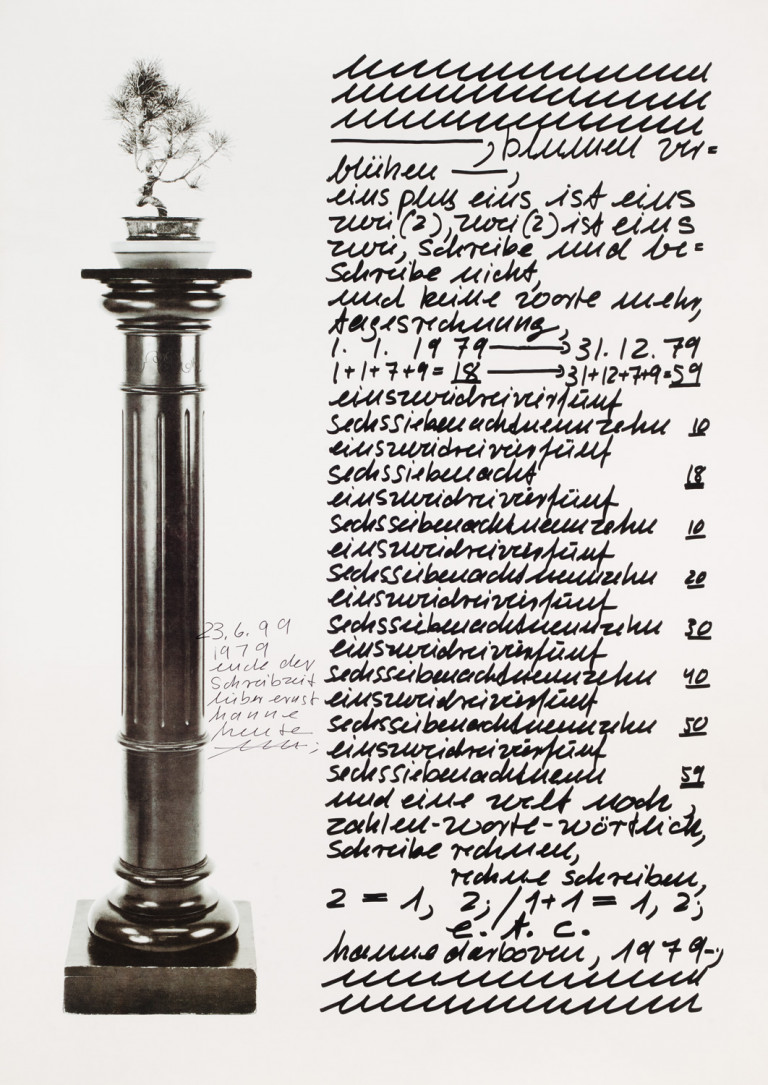 , blumen ver=
blühen —,
eins plus eins ist eins
zwei (2), zwei (2) ist eins
zwei, schreibe und be=
schreibe nicht,
und keine worte mehr,
tagesrechnung,
1. 1. 1979 → 31.12.79
1+1+7+9=18 → 31+12+7+9=59
einszweidreivierfünf
sechssiebenachtneunzehn 10
einszweidreivierfünf
sechssiebenacht 18
einszweidreivierfünf
sechsseibenachtneunzehn 10
einszweidreivierfünf
sechsseibenachtneunzehn 20
einszweidreivierfünf
sechsseibenachtneunzehn 30
einszweidreivierfünf
sechsseibenachtneunzehn 40
einszweidreivierfünf
sechsseibenachtneunzehn 50
einszweidreivierfünf
sechssiebenachtneun 59
und eine welt noch,
zahlen-worte-wörtlich,
schreibe rechnen,
rechne schreiben,
2 = 1, 2; / 1+1 = 1, 2;
e. t. c.
hanne darboven, 1979-,
23.6.99
1979
ende der
Schreibzeit
lieber ernst
hanne
heute